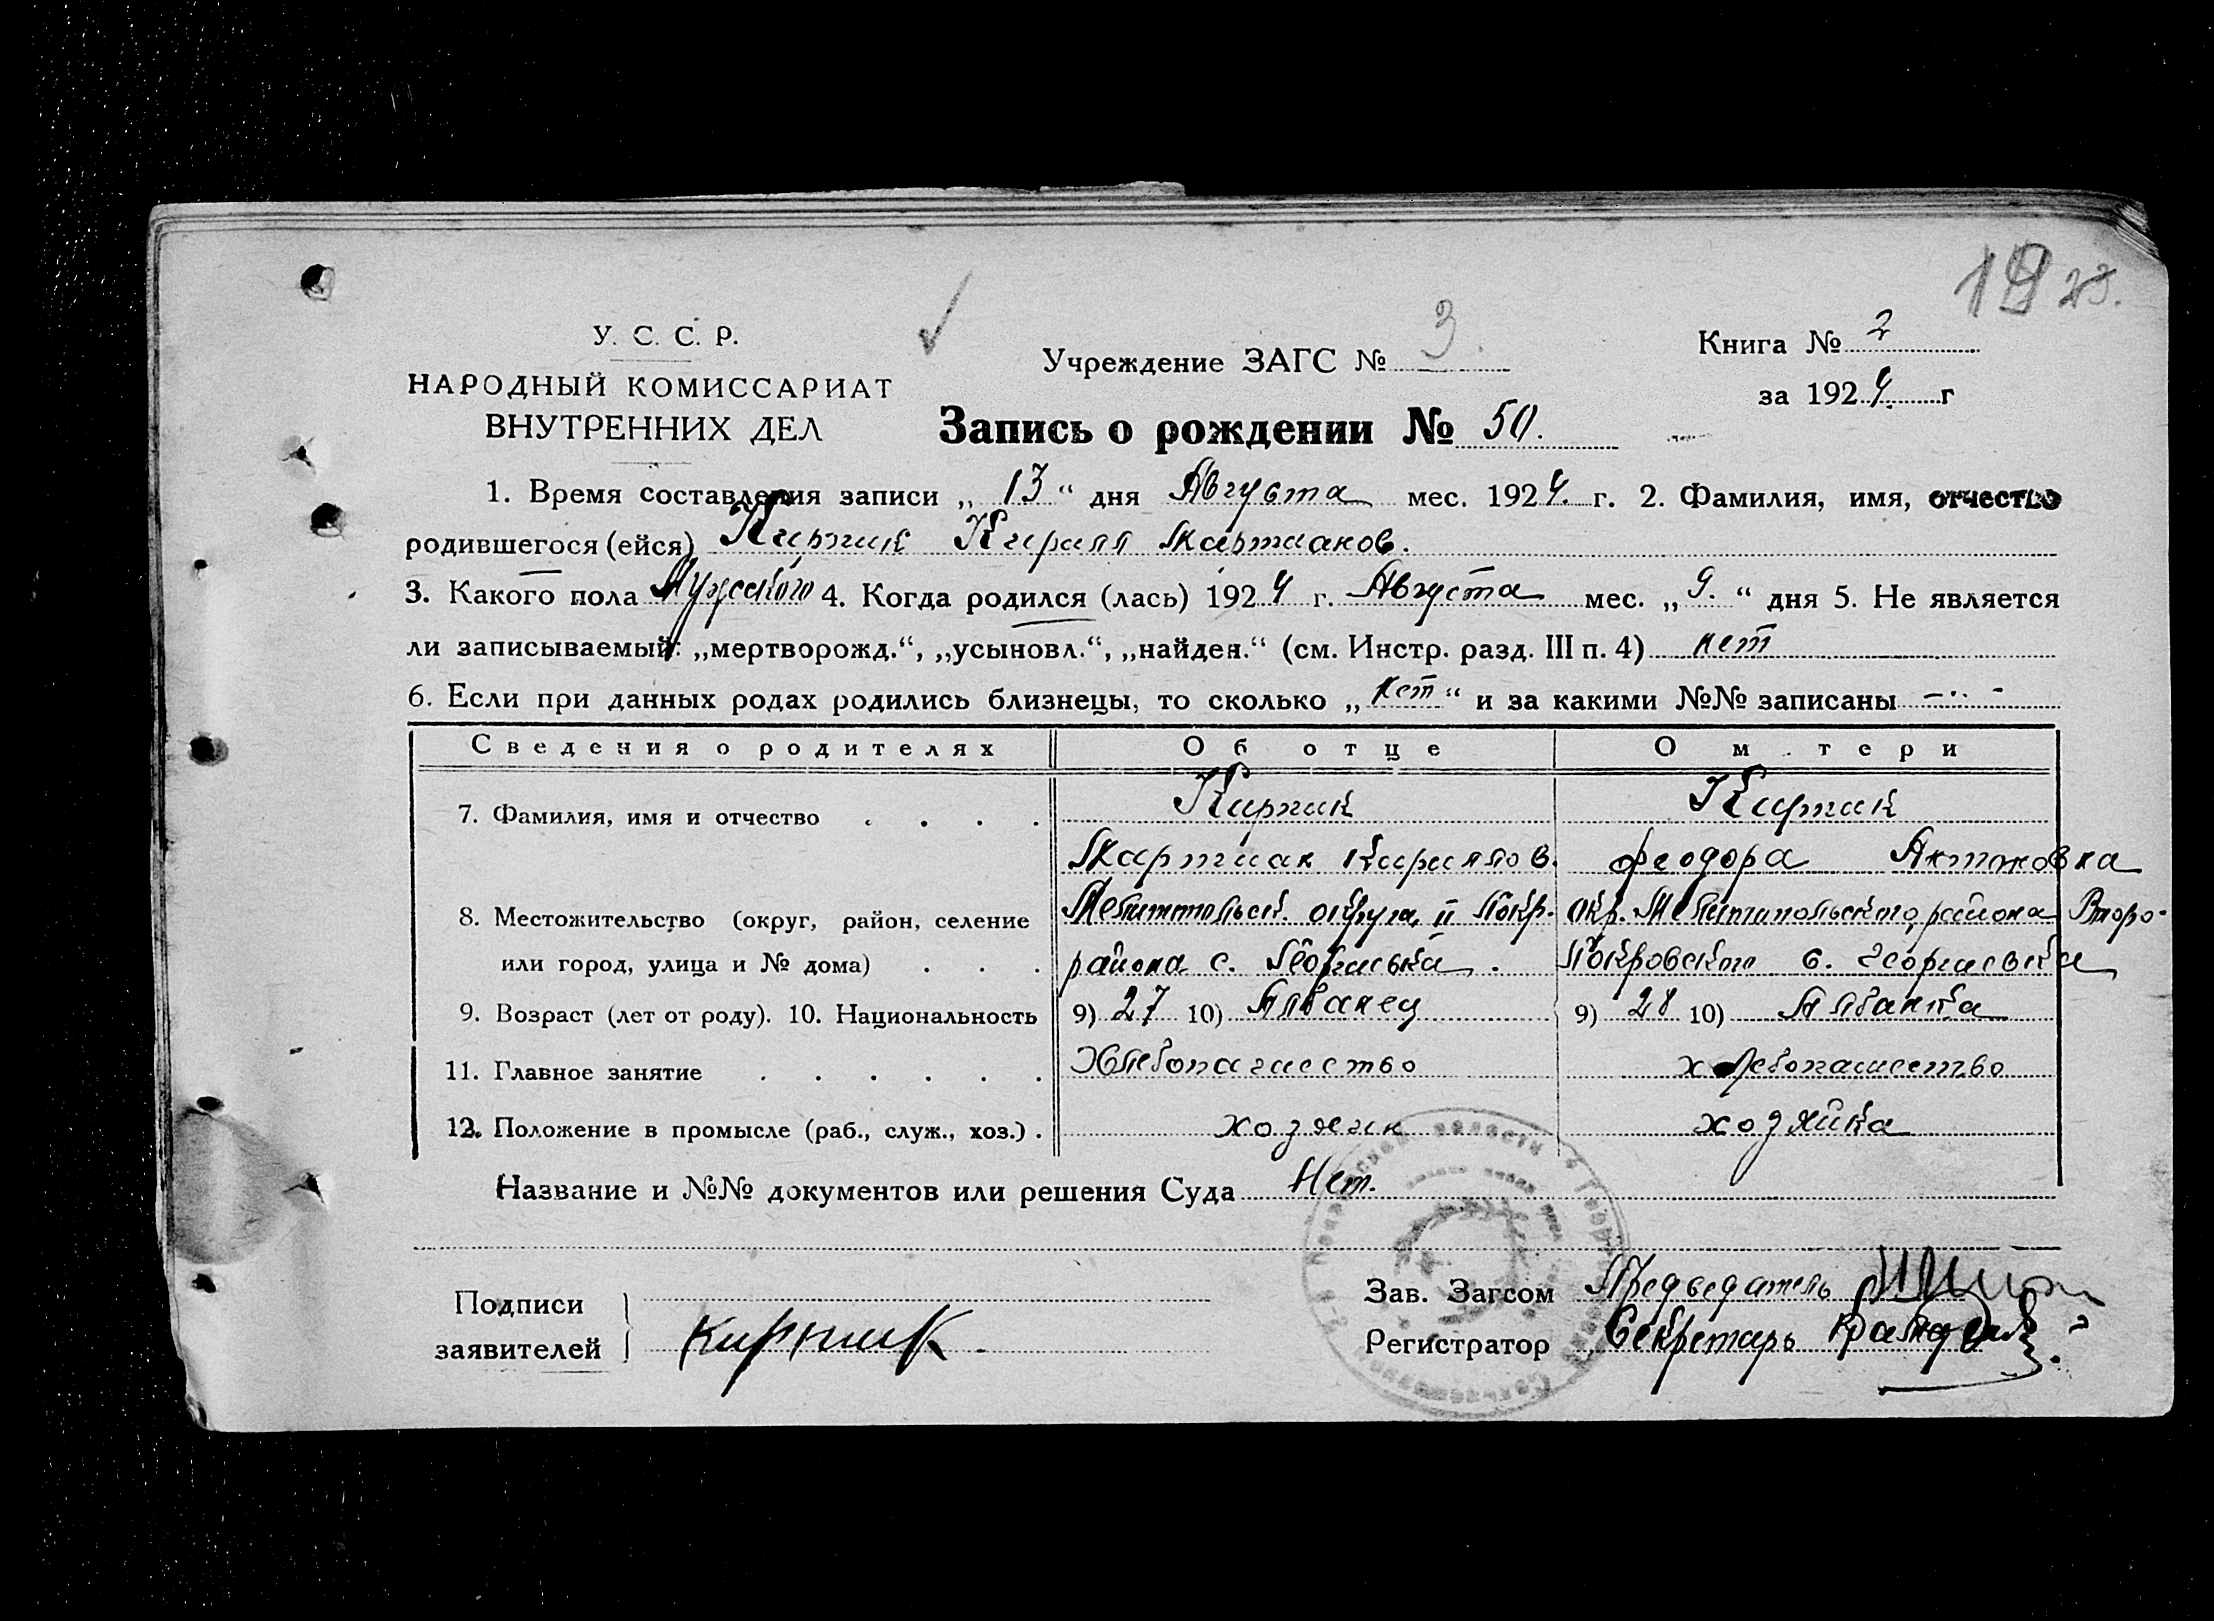 19 23.
У. С. С. Р.
НАРОДНЫЙ КОМИССАРИАТ
ВНУТРЕННИХ ДЕЛ
Учреждение ЗАГС № 3.
Книга № 2
за 1924 г
Запись о рождении № 50.
1. Время составления записи „ 13 “ дня Августа мес. 1924. г. 2. Фамилия, имя, отчество
родившегося (ейся) Кирчик Кирилл
3. Какого пола Мужского 4. Когда родился (лась) 1924 г. Августа мес. „ 9. “ дня 5. Не является
ли записываемый: „мертворожд.“, „усыновл.“, „найден.“ (см. Инстр. разд. III п. 4) нет
6. Если при данных родах родились близнецы, то сколько „ нет “ и за какими №№ записаны
Сведения о родителях Об отце О м тери
7. Фамилия, имя и отчество Кирчик Кирчик
Кирилов. Феодора Антоновна
8. Местожительство (округ, район, селение Мелитопольск. округа II Покр. Окр. Мелитопольского, района Второ-
или город, улица и № дома) района с. Георгиевка. Покровского с. Георгиевка
9. Возраст (лет от роду). 10. Национальность 9) 27 10) Албанец 9) 28 10) Албанка
11. Главное занятие Хлебопашество хлебопашество
12. Положение в промысле (раб., служ., хоз.) хозяин хозяйка
Название и №№ документов или решения Суда Нет.
Подписи
заявителей Кирчик
Зав. Загсом Председатель
Регистратор Секретарь